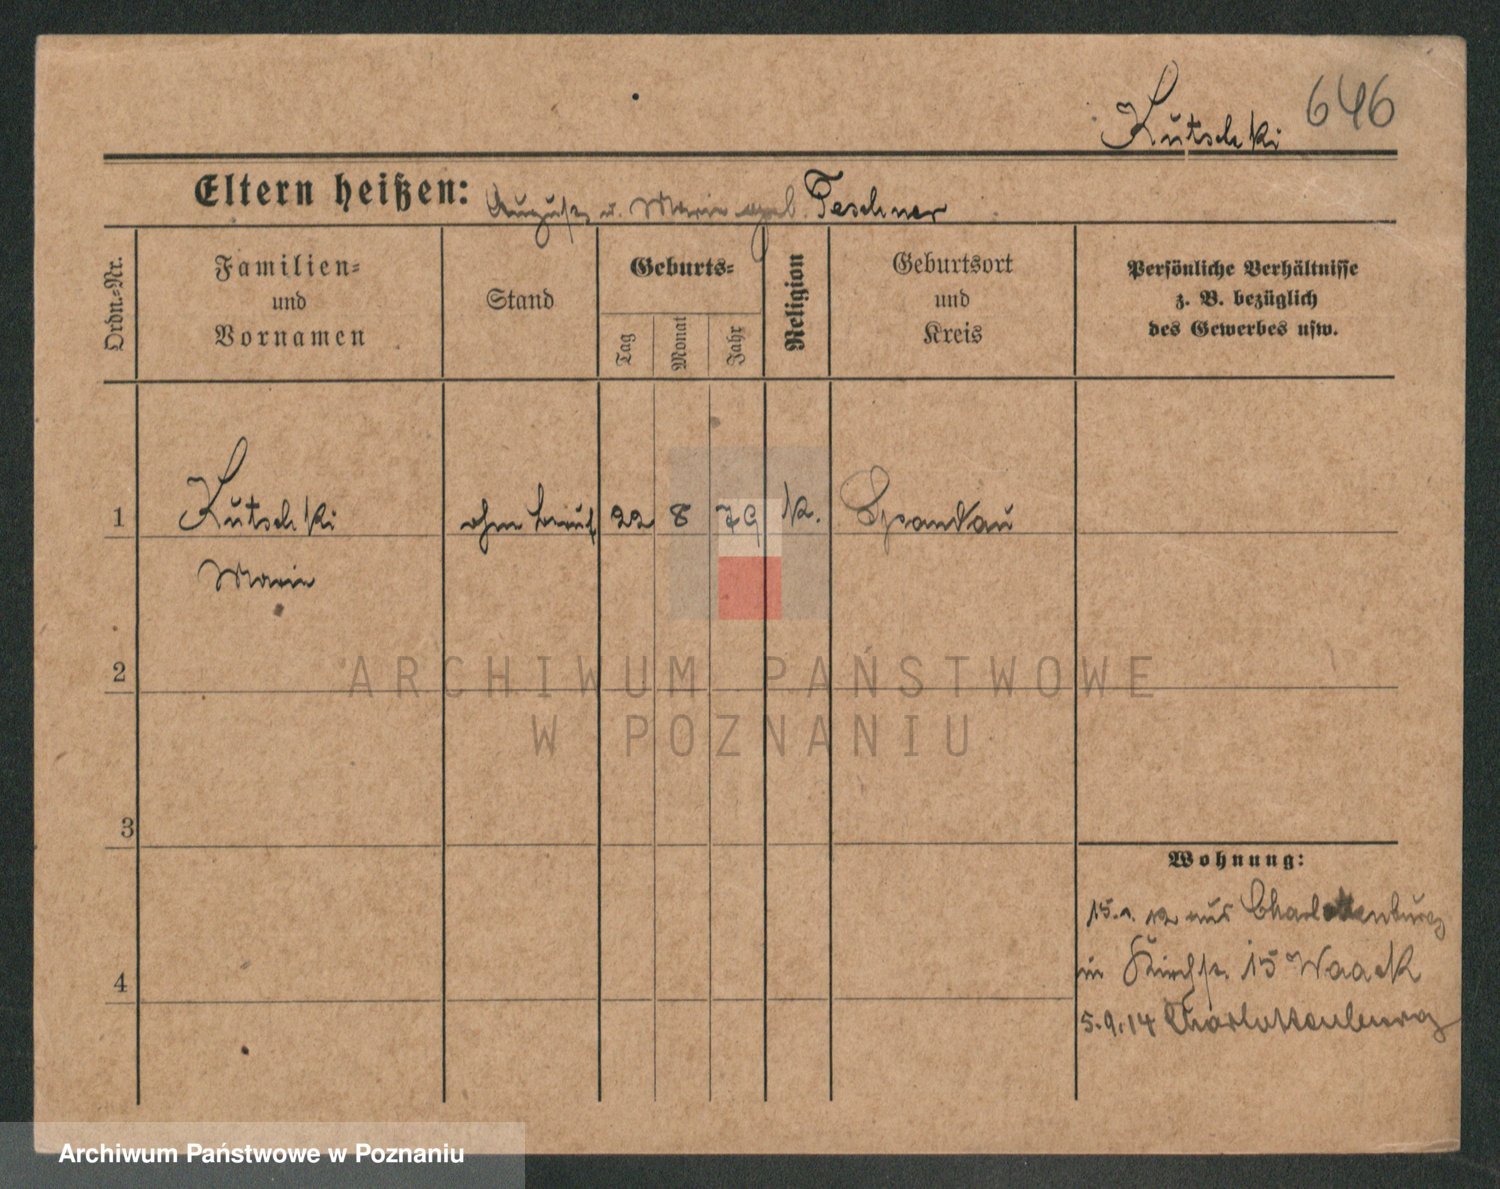 Kutschki 646
Eltern heißen: August u. Marie geb. Teschner
Ordn.-Nr.
Familien-
und
Vornamen
Stand
Geburts-
Tag
Monat
Jahr
Religion
Geburtsort
und
Kreis
Persönliche Verhältnisse
z. B. bezüglich
des Gewerbes usw.
1 Kutschki ohne Beruf 22 8 79 k. Spandau
Marie
2
3
4
Wohnung:
15.1.12 aus Charlottenburg
in Kirchstr. 15 Waack
5.9.14 Charlottenburg
ARCHIWUM PAŃSTWOWE
W POZNANIU
Archiwum Państwowe w Poznaniu